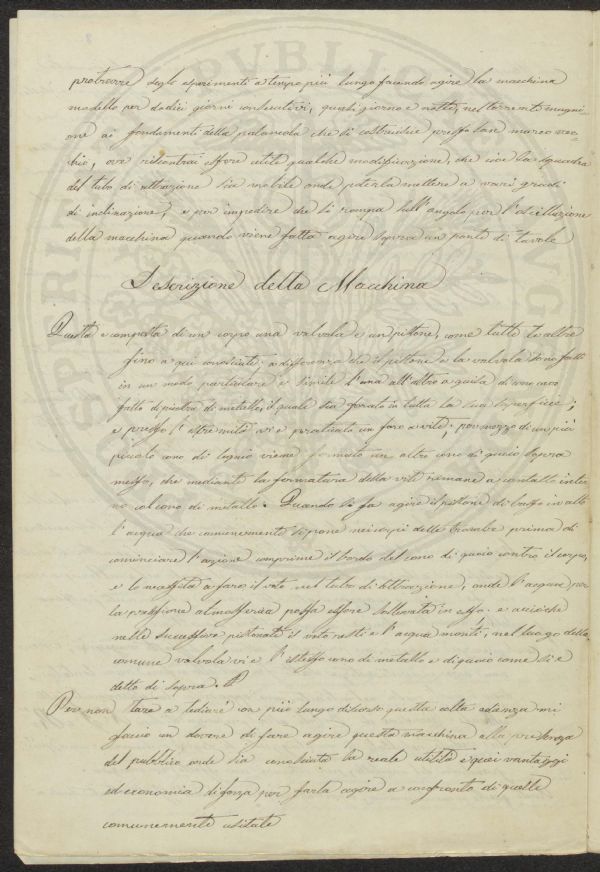 protrarre degli esperimenti a tempo più lungo facendo agire la macchina
modello per dodici giorni consecutivi, quasi giorno e notte, nel torrente mugni-
one ai fondamenti della che di costruisce presso San marco vec-
chio, ove riscontrai essere utile qualche modificazione, che cioè la squadra
del tubo di attrazione sia mobile onde poterla mettere a vari gradi
di inclinazione, e per impedire che si rompa sull'angolo per l'oscillazione
della macchina quando viene fatta agire sopra un ponte di tavole
Descrizione della Macchina
Questa e composta di un corpo una valvola e un pistone, come tutte le altre
fino a qui conosciute, a differenza che il pistone e la valvola sono fatti
in un modo particolare e simile l'una all'altro a guisa di cono
fatto di piastra di metallo, il quale sia forato in tutta la sua superficie;
e presso l'estremità vi e praticato un foro a vite; per mezzo di un più
piccolo cono di legno viene formato un altro cono di quoio sopra
messo, che mediante la fermatura della vite rimane a contatto inter-
no col cono di metallo. Quando si fa agire il pistone di basso in alto
l'acqua che comunemente si pone nei corpi delle trombe prima di
cominciare l'azione comprime il bordo del cono di quoio contro il corpo,
e lo necessita a fare il voto nel tubo di attrazione, onde l'acqua per
la pressione atmosferica possa essere sollevata in esso. e acciochè
nelle successive pistonate il voto resti e l'acqua monti, nel luogo della
comune valvola vi e l'istesso cono di metallo e di quoio come si e
detto di sopra.
Per non stare a tediare con più lungo discorso questa colta udienza mi
faccio un dovere di fare agire questa macchina alla presenza
del pubblico onde sia conosciuta la reale utilità e quei vantaggi
ed economia di forza per farla agire a confronto di quelle
comunemente usitate